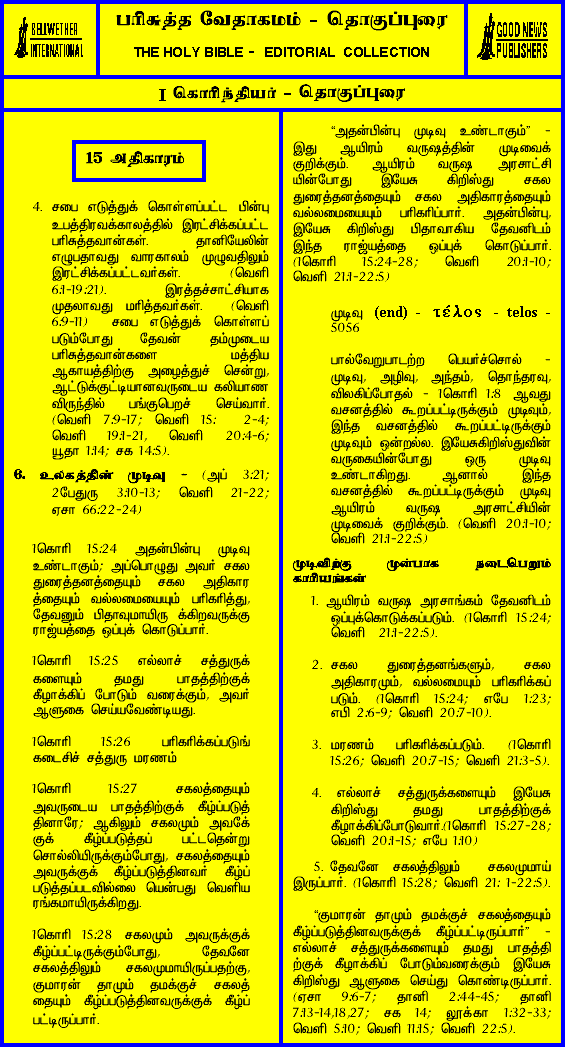 BELLWETHER
INTERNATIONAL
பரிசுத்த வேதாகமம் - தொகுப்புரை
THE HOLY BIBLE - EDITORIAL COLLECTION
GOOD NEWS
PUBLISHERS
I கொரிந்தியர் - தொகுப்புரை
15 அதிகாரம்
4. சபை எடுத்துக் கொள்ளப்பட்ட பின்பு
உபத்திரவக்காலத்தில் இரட்சிக்கப்பட்ட
பரிசுத்தவான்கள். தானியேலின்
எழுபதாவது வாரகாலம் முழுவதிலும்
இரட்சிக்கப்பட்டவர்கள். (வெளி
6:1-19:21). இரத்தச்சாட்சியாக
முதலாவது மரித்தவர்கள். (வெளி
6:9-11) சபை எடுத்துக் கொள்ளப்
படும்போது தேவன் தம்முடைய
பரிசுத்தவான்களை மத்திய
ஆகாயத்திற்கு அழைத்துச் சென்று,
ஆட்டுக்குட்டியானவருடைய கலியாண
விருந்தில் பங்குபெறச் செய்வார்.
(வெளி 7:9-17; வெளி 15: 2-4;
வெளி 19:1-21, வெளி 20:4-6;
யூதா 1:14; சக 14:5).
6. உலகத்தின் முடிவு - (அப் 3:21;
2பேதுரு 3:10-13; வெளி 21-22;
ஏசா 66:22-24)
1கொரி 15:24 அதன்பின்பு முடிவு
உண்டாகும்; அப்பொழுது அவர் சகல
துரைத்தனத்தையும் சகல அதிகார
த்தையும் வல்லமையையும் பரிகரித்து,
தேவனும் பிதாவுமாயிரு க்கிறவருக்கு
ராஜ்யத்தை ஒப்புக் கொடுப்பார்.
1கொரி 15:25 எல்லாச் சத்துருக்
களையும் தமது பாதத்திற்குக்
கீழாக்கிப் போடும் வரைக்கும், அவர்
ஆளுகை செய்யவேண்டியது.
1கொரி 15:26 பரிகரிக்கப்படுங்
கடைசிச் சத்துரு மரணம்
1கொரி 15:27 சகலத்தையும்
அவருடைய பாதத்திற்குக் கீழ்ப்படுத்
தினாரே; ஆகிலும் சகலமும் அவருக்
குக் கீழ்ப்படுத்தப் பட்டதென்று
சொல்லியிருக்கும்போது, சகலத்தையும்
அவருக்குக் கீழ்ப்படுத்தினவர் கீழ்ப்
படுத்தப்படவில்லை யென்பது வெளிய
ரங்கமாயிருக்கிறது.
1கொரி 15:28 சகலமும் அவருக்குக்
கீழ்ப்பட்டிருக்கும்போது, தேவனே
சகலத்திலும் சகலமுமாயிருப்பதற்கு,
குமாரன் தாமும் தமக்குச் சகலத்
தையும் கீழ்ப்படுத்தினவருக்குக் கீழ்ப்
பட்டிருப்பார்.
“அதன்பின்பு முடிவு உண்டாகும்” -
இது ஆயிரம் வருஷத்தின் முடிவைக்
குறிக்கும். ஆயிரம் வருஷ அரசாட்சி
யின்போது இயேசு கிறிஸ்து சகல
துரைத்தனத்தையும் சகல அதிகாரத்தையும்
வல்லமையையும் பரிகரிப்பார். அதன்பின்பு,
இயேசு கிறிஸ்து பிதாவாகிய தேவனிடம்
இந்த ராஜ்யத்தை ஒப்புக் கொடுப்பார்.
(1கொரி 15:24-28; வெளி 20:1-10;
வெளி 21:1-22:5)
முடிவு (end) - τέλος - telos -
5056
பால்வேறுபாடற்ற பெயர்ச்சொல் -
முடிவு, அழிவு, அந்தம், தொந்தரவு,
விலகிப்போதல் - 1கொரி 1:8 ஆவது
வசனத்தில் கூறப்பட்டிருக்கும் முடிவும்,
இந்த வசனத்தில் கூறப்பட்டிருக்கும்
முடிவும் ஒன்றல்ல. இயேசுகிறிஸ்துவின்
வருகையின்போது ஒரு முடிவு
உண்டாகிறது. ஆனால் இந்த
வசனத்தில் கூறப்பட்டிருக்கும் முடிவு
ஆயிரம் வருஷ அரசாட்சியின்
முடிவைக் குறிக்கும். (வெளி 20:1-10;
வெளி 21:1-22:5)
முடிவிற்கு முன்பாக நடைபெறும்
காரியங்கள்
1. ஆயிரம் வருஷ அரசாங்கம் தேவனிடம்
ஒப்புக்கொடுக்கப்படும். (1கொரி 15:24;
வெளி 21:1-22:5).
2. சகல துரைத்தனங்களும், சகல
அதிகாரமும், வல்லமையும் பரிகரிக்கப்
படும். (1கொரி 15:24; எபே 1:23;
எபி 2:6-9; வெளி 20:7-10).
3. மரணம் பரிகரிக்கப்படும். (1கொரி
15:26; வெளி 20:7-15; வெளி 21:3-5).
4. எல்லாச் சத்துருக்களையும் இயேசு
கிறிஸ்து தமது பாதத்திற்குக்
கீழாக்கிப்போடுவார்.(1கொரி 15:27-28;
வெளி 20:1-15; எபே 1:10)
5. தேவனே சகலத்திலும் சகலமுமாய்
இருப்பார். (1கொரி 15:28; வெளி 21: 1-22:5).
“குமாரன் தாமும் தமக்குச் சகலத்தையும்
கீழ்ப்படுத்தினவருக்குக் கீழ்ப்பட்டிருப்பார்” -
எல்லாச் சத்துருக்களையும் தமது பாதத்தி
ற்குக் கீழாக்கிப் போடும்வரைக்கும் இயேசு
கிறிஸ்து ஆளுகை செய்து கொண்டிருப்பார்.
(ஏசா 9:6-7; தானி 2:44-45; தானி
7:13-14,18,27; சக 14; லூக்கா 1:32-33;
வெளி 5:10; வெளி 11:15; வெளி 22:5).